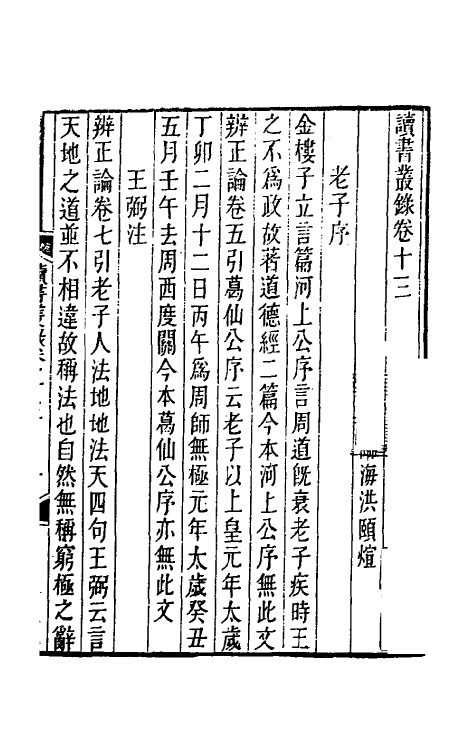 讀書叢錄卷十三
臨海洪頤煊
老子序
金樓子立言篇河上公序言周道既衰老子疾時王
之不爲政故著道德經二篇今本河上公序無此文
辨正論卷五引葛仙公序云老子以上皇元年太歲
丁卯二月十二日丙午爲周師無極元年太歲癸丑
五月壬午去周西度關今本葛仙公序亦無此文
王弼注
辨正論卷七引老子人法地地法天四句王弼云言
天地之道並不相違故稱法也自然無稱窮極之辭